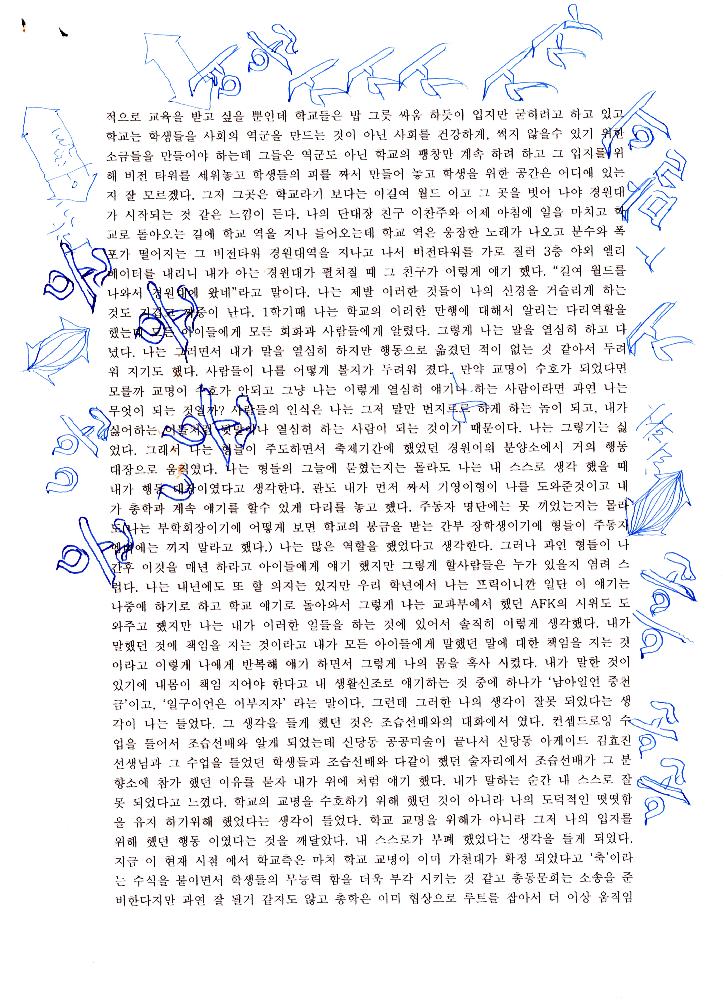 적으로 교육을 받고 싶을 뿐인데 학교들은 밥 그릇 싸움 하듯이 입지만 굳히려고 하고 있고
학교는 학생들을 사회의 역군을 만드는 것이 아닌 사회를 건강하게, 썩지 않을수 있기 위한
소금들을 만들어야 하는데 그들은 역군도 아닌 학교의 팽창만 계속 하려 하고 그 입지를 위
해 비전 타워를 세워놓고 학생들의 피를 짜서 만들어 놓고 학생을 위한 공간은 어디에 있는
지 잘 모르겠다. 그저 그곳은 학교라기 보다는 이길여 월드 이고 그 곳을 벗어 나야 경원대
가 시작되는 것 같은 느낌이 든다. 나의 단대장 친구 이찬주와 어제 아침에 일을 마치고 학
교로 돌아오는 길에 학교 역을 지나 들어오는데 학교 역은 웅장한 노래가 나오고 분수와 폭
포가 떨어지는 그 비전타워 경원대역을 지나고 나서 비전타워를 가로 질러 3층 야외 엘리
베이터를 내리니 내가 아는 경원대가 펼쳐질 때 그 친구가 이렇게 얘기 했다. "길여 월드를
나와서 경원대에 왔네"라고 말이다. 나는 제발 이러한 것들이 나의 신경을 거슬리게 하는
것도 지겹고 짜증이 난다. 1학기때 나는 학교의 이러한 만행에 대해서 알리는 다리역할을
했는데 모든 아이들에게 모든 회화과 사람들에게 알렸다. 그렇게 나는 말을 열심히 하고 다
녔다. 나는 그러면서 내가 말을 열심히 하지만 행동으로 옮겼던 적이 없는 것 같아서 두려
워 지기도 했다. 사람들이 나를 어떻게 볼지가 두려워 졌다. 만약 교명이 수호가 되었다면
모를까 교명이 수호가 안되고 그냥 나는 이렇게 열심히 얘기나 하는 사람이라면 과연 나는
무엇이 되는 것일까? 사람들의 인식은 나는 그저 말만 번지르르 하게 하는 놈이 되고, 내가
싫어하는 하게 열심히 하는 사람이 되는 것이기 때문이다. 나는 그렇기는 싫
었다. 그래서 나는 형들이 주도하면서 축제기간에 했었던 경원이의 분양소에서 거의 행동
대장으로 움직였다. 나는 형들의 그늘에 묻혔는지는 몰라도 나는 내 스스로 생각 했을 때
내가 행동 대장이였다고 생각한다. 관도 내가 먼저 짜서 기영이형이 나를 도와준것이고 내
가 총학과 계속 얘기를 할수 있게 다리를 놓고 했다. 주동자 명단에는 못 끼었는지는 몰라
도(나는 부학회장이기에 어떻게 보면 학교의 봉급을 받는 간부 장학생이기에 형들이 주동자
명단에는 끼지 말라고 했다.) 나는 많은 역할을 했었다고 생각한다. 그러나 과연 형들이 나
간후 이것을 매년 하라고 아이들에게 얘기 했지만 그렇게 할사람들은 누가 있을지 염려 스
럽다. 나는 내년에도 또 할 의지는 있지만 우리 학년에서 나는 프릭이니깐 일단 이 얘기는
나중에 하기로 하고 학교 얘기로 돌아와서 그렇게 나는 교과부에서 했던 AFK의 시위도 도
와주고 했지만 나는 내가 이러한 일들을 하는 것에 있어서 솔직히 이렇게 생각했다. 내가
말했던 것에 책임을 지는 것이라고 내가 모든 아이들에게 말했던 말에 대한 책임을 지는 것
이라고 이렇게 나에게 반복해 얘기 하면서 그렇게 나의 몸을 혹사 시켰다. 내가 말한 것이
있기에 내몸이 책임 지어야 한다고 내 생활신조로 얘기하는 것 중에 하나가 '남아일언 중천
금'이고, '일구이언은 이부지자' 라는 말이다. 그런데 그러한 나의 생각이 잘못 되었다는 생
각이 나는 들었다. 그 생각을 들게 했던 것은 조습선배와의 대화에서 였다. 컨셉드로잉 수
업을 들어서 조습선배와 알게 되었는데 신당동 공공미술이 끝나서 신당동 아케이드 김효진
선생님과 그 수업을 들었던 학생들과 조습선배와 다같이 했던 술자리에서 조습선배가 그 분
향소에 참가 했던 이유를 묻자 내가 위에 처럼 얘기 했다. 내가 말하는 순간 내 스스로 잘
못 되었다고 느꼈다. 학교의 교명을 수호하기 위해 했던 것이 아니라 나의 도덕적인 떳떳함
을 유지 하기위해 했었다는 생각이 들었다. 학교 교명을 위해가 아니라 그저 나의 입지를
위해 했던 행동 이였다는 것을 깨달았다. 내 스스로가 부폐 했었다는 생각을 들게 되었다.
지금 이 현재 시점 에서 학교측은 마치 학교 교명이 이미 가천대가 확정 되었다고 '축'이라
는 수식을 붙이면서 학생들의 무능력 함을 더욱 부각 시키는 것 같고 총동문회는 소송을 준
비한다지만 과연 잘 될기 같지도 않고 총학은 이미 협상으로 루트를 잡아서 더 이상 움직임